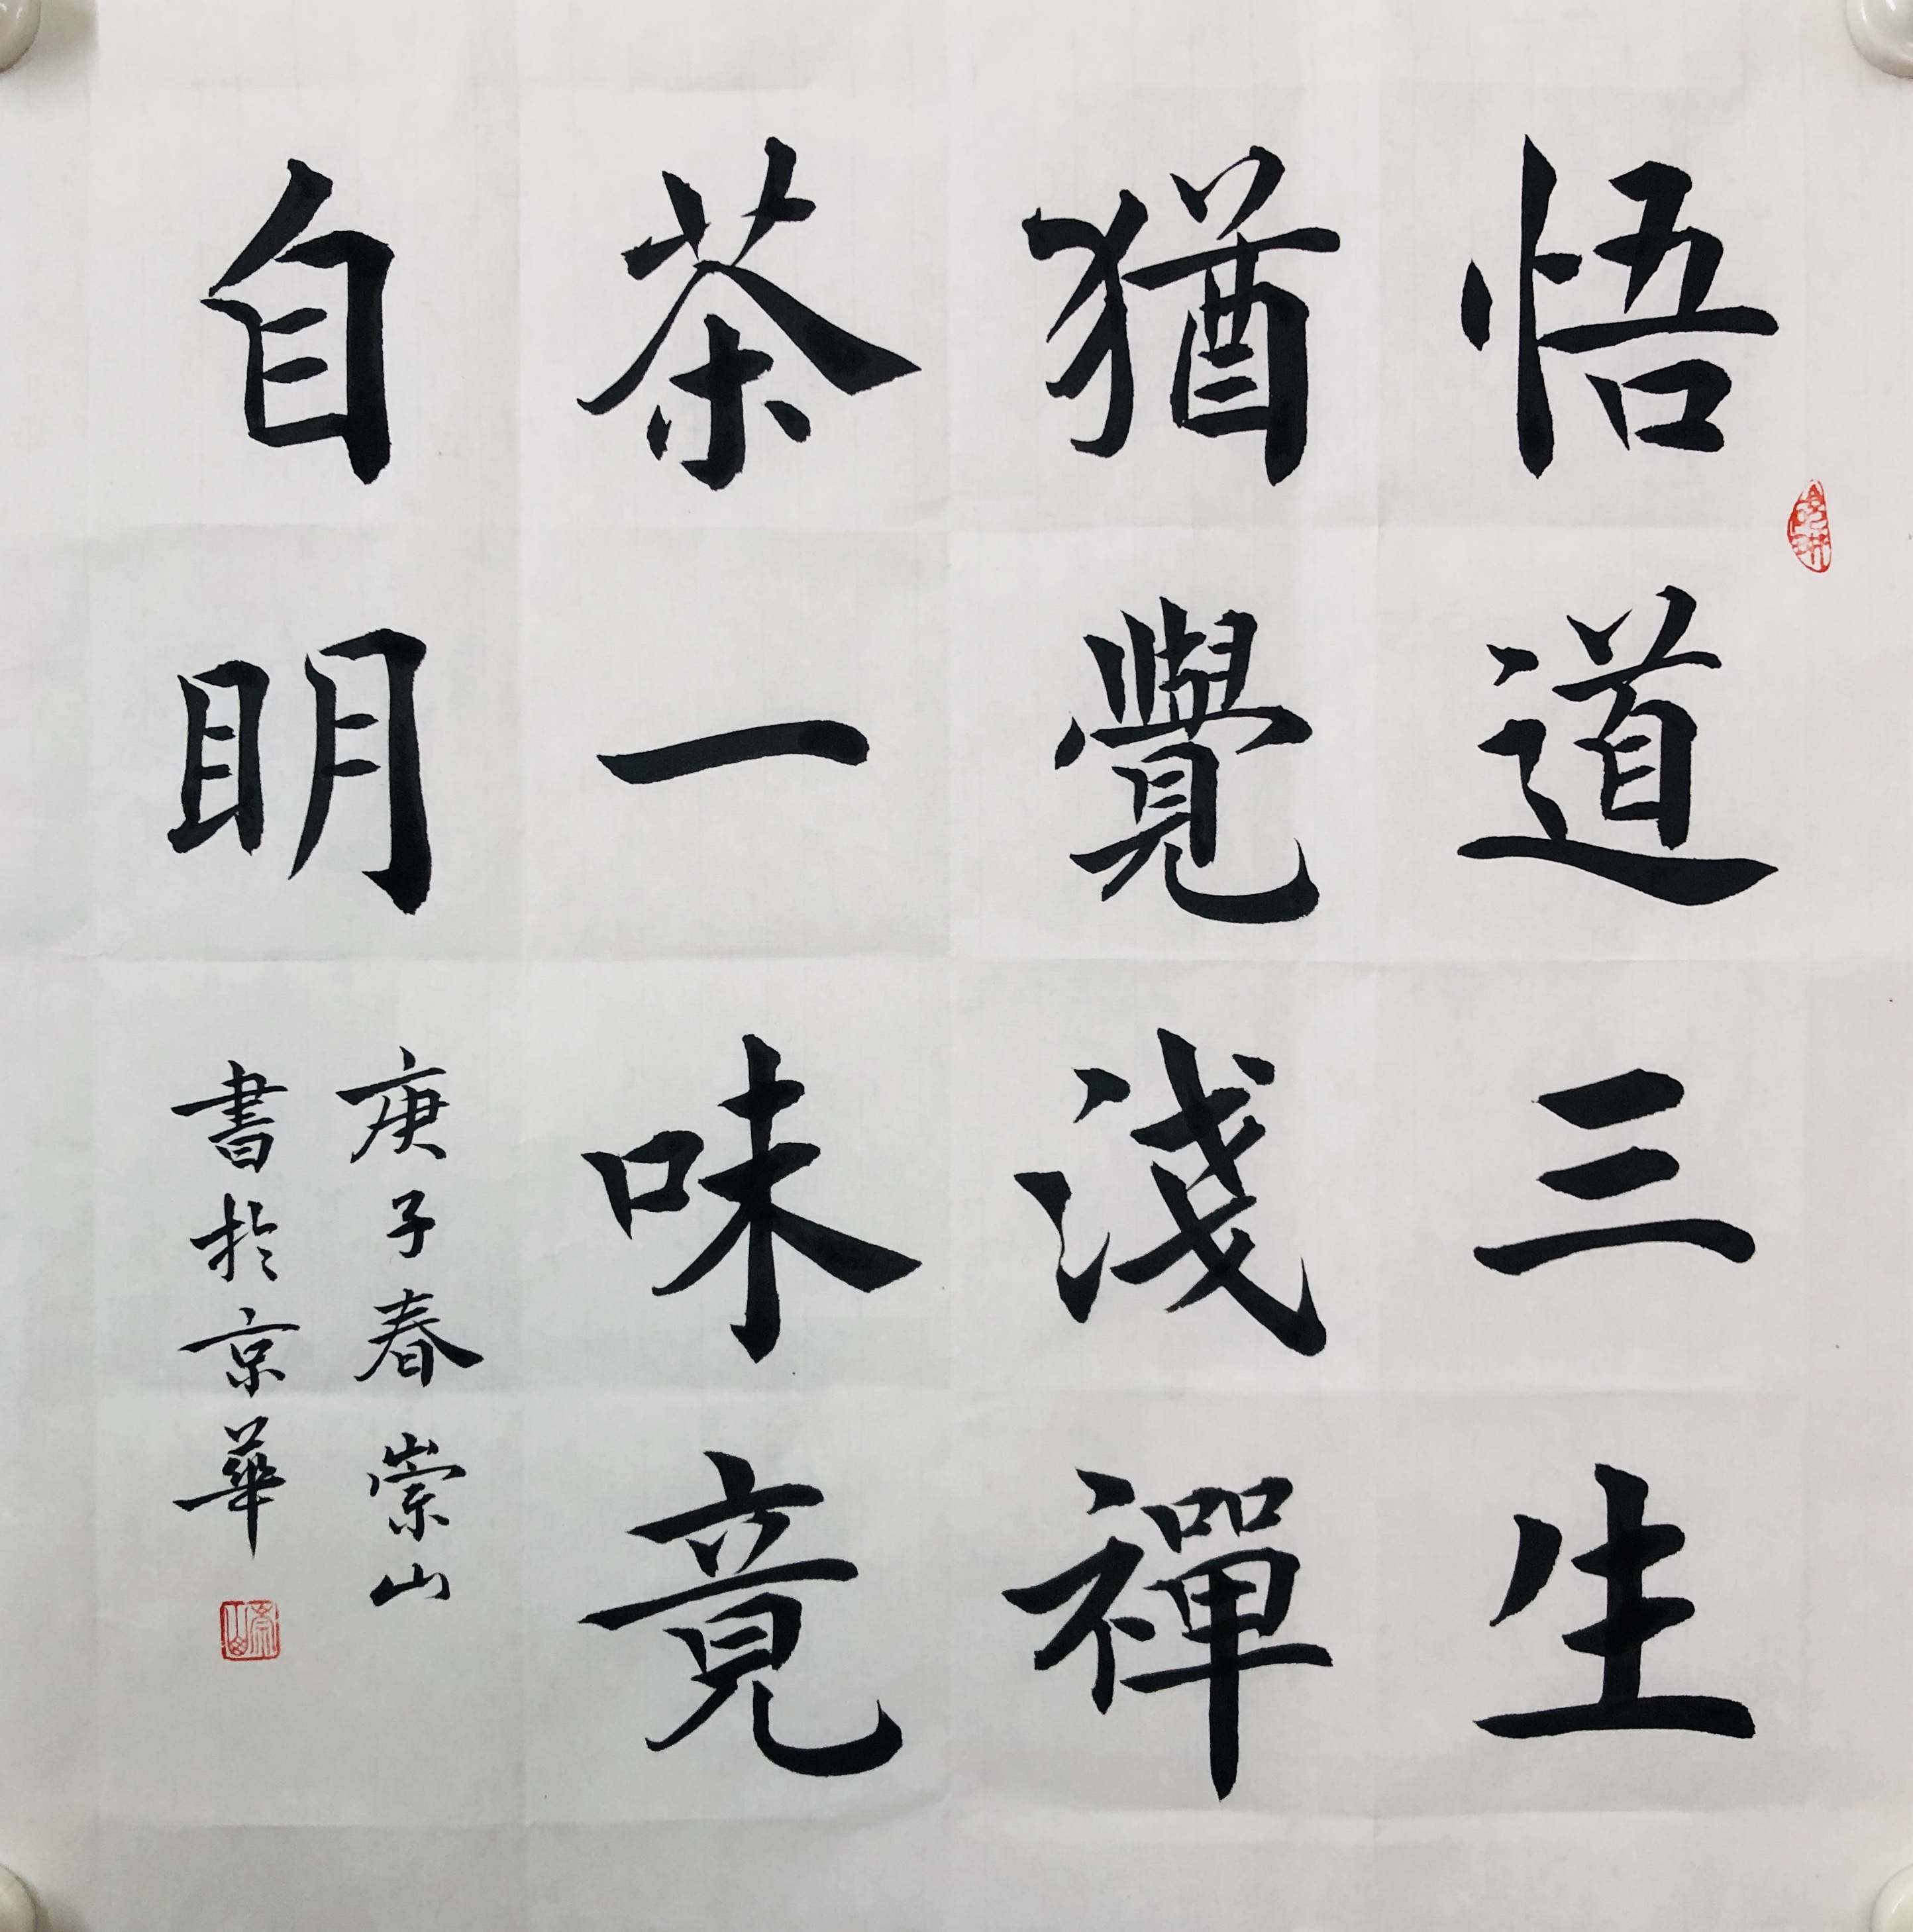 悟道三生
猶覺淺禪
茶一味竟
自明
庚子春崇山
書於京華